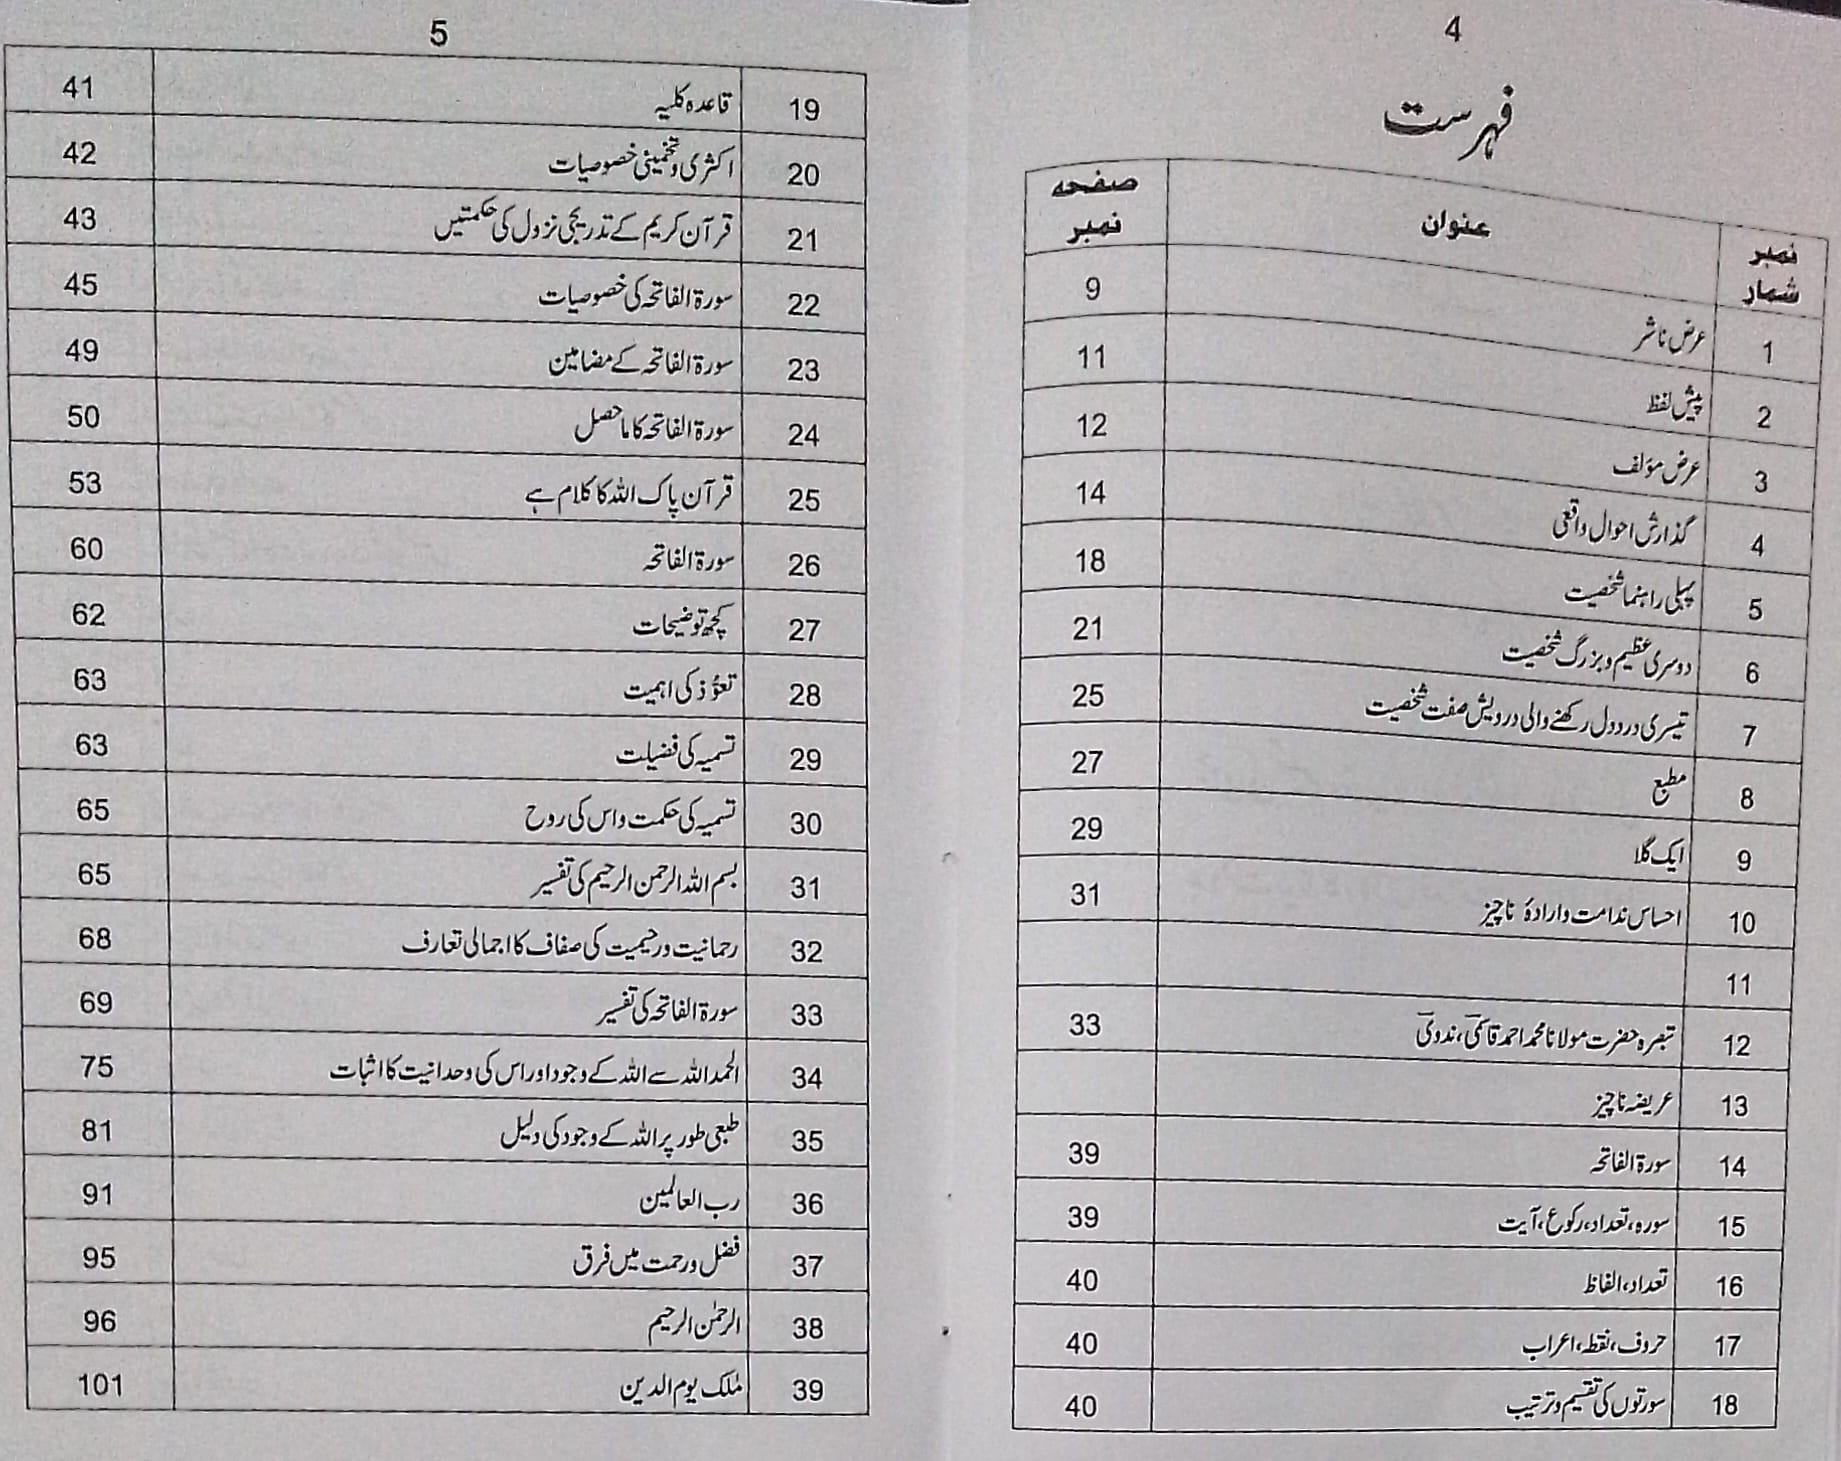 4
فہرست
نمبر شمار عنوان صفحہ نمبر
1 عرض ناشر 9
2 پیش لفظ 11
3 عرض مؤلف 12
4 گذارش احوال واقعی 14
5 پہلی راہنما شخصیت 18
6 دوسری عظیم و بزرگ شخصیت 21
7 تیسری درد دل رکھنے والی درویش صفت شخصیت 25
8 مطبع 27
9 ایک گلا 29
10 احساس ندامت وارادۂ ناچیز 31
11
12 تبصرہ حضرت مولانا محمد احمد قاسمیؔ، ندویؔ 33
13 عریضہ ناچیز
14 سورۃ الفاتحہ 39
15 سورہ، تعداد، رکوع، آیت 39
16 تعداد، الفاظ 40
17 حروف، نقطہ، اعراب 40
18 سورتوں کی تقسیم و ترتیب 40
5
19 قاعدہ کلیہ 41
20 اکثری و تخمینی خصوصیات 42
21 قرآن کریم کے تدریجی نزول کی حکمتیں 43
22 سورۃ الفاتحہ کی خصوصیات 45
23 سورۃ الفاتحہ کے مضامین 49
24 سورۃ الفاتحہ کا ماحصل 50
25 قرآن پاک اللہ کا کلام ہے 53
26 سورۃ الفاتحہ 60
27 کچھ توضیحات 62
28 تعوُّذ کی اہمیت 63
29 تسمیہ کی فضیلت 63
30 تسمیہ کی حکمت و اس کی روح 65
31 بسم اللہ الرحمن الرحیم کی تفسیر 65
32 رحمانیت و رحیمیت کی صفاف کا اجمالی تعارف 68
33 سورۃ الفاتحہ کی تفسیر 69
34 الحمد اللہ سے اللہ کے وجود اور اس کی وحدانیت کا اثبات 75
35 طبعی طور پر اللہ کے وجود کی دلیل 81
36 رب العالمین 91
37 فضل و رحمت میں فرق 95
38 الرحمٰن الرحیم 96
39 مٰلک یوم الدین 101